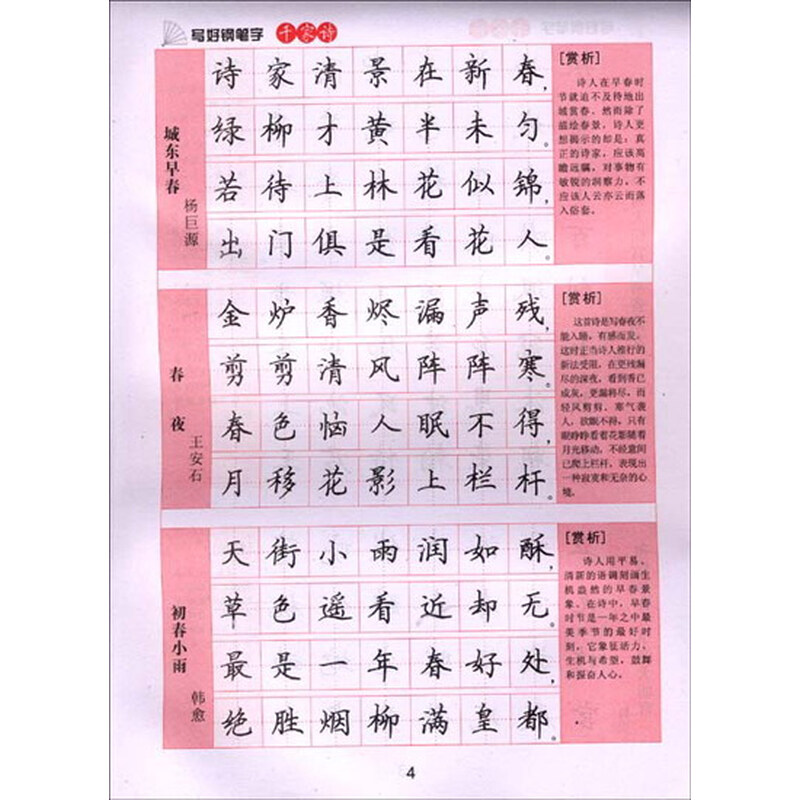 写好钢笔字 千家诗
城东早春
杨巨源
诗家清景在新春,
绿柳才黄半未匀。
若待上林花似锦,
出门俱是看花人。
[赏析]
诗人在早春时
节就迫不及待地出
城赏春。然而除了
描绘春景，诗人更
想揭示的却是：真
正的诗家，应该高
瞻远瞩，对事物有
敏锐的洞察力，不
应该人云亦云而落
入俗套。
春夜
王安石
金炉香烬漏声残,
剪剪清风阵阵寒。
春色恼人眠不得,
月移花影上栏杆。
[赏析]
这首诗是写春夜不
能入睡，有感而发。
这时正当诗人推行的
新法受阻，在更残漏
尽的深夜，看到香已
成灰，更漏将尽，而
轻风剪剪，寒气袭
人，欲眠不得，只有
眼睁睁看着花影随着
月光移动，不经意间
已爬上栏杆，表现出
一种寂寞和无奈的心
境。
初春小雨
韩愈
天街小雨润如酥,
草色遥看近却无。
最是一年春好处,
绝胜烟柳满皇都。
[赏析]
诗人用平易、
清新的语调刻画生
机盎然的早春景
象。在诗中，早春
时节是一年之中最
美季节的最好时
刻，它象征活力、
生机与希望，鼓舞
和振奋人心。
4